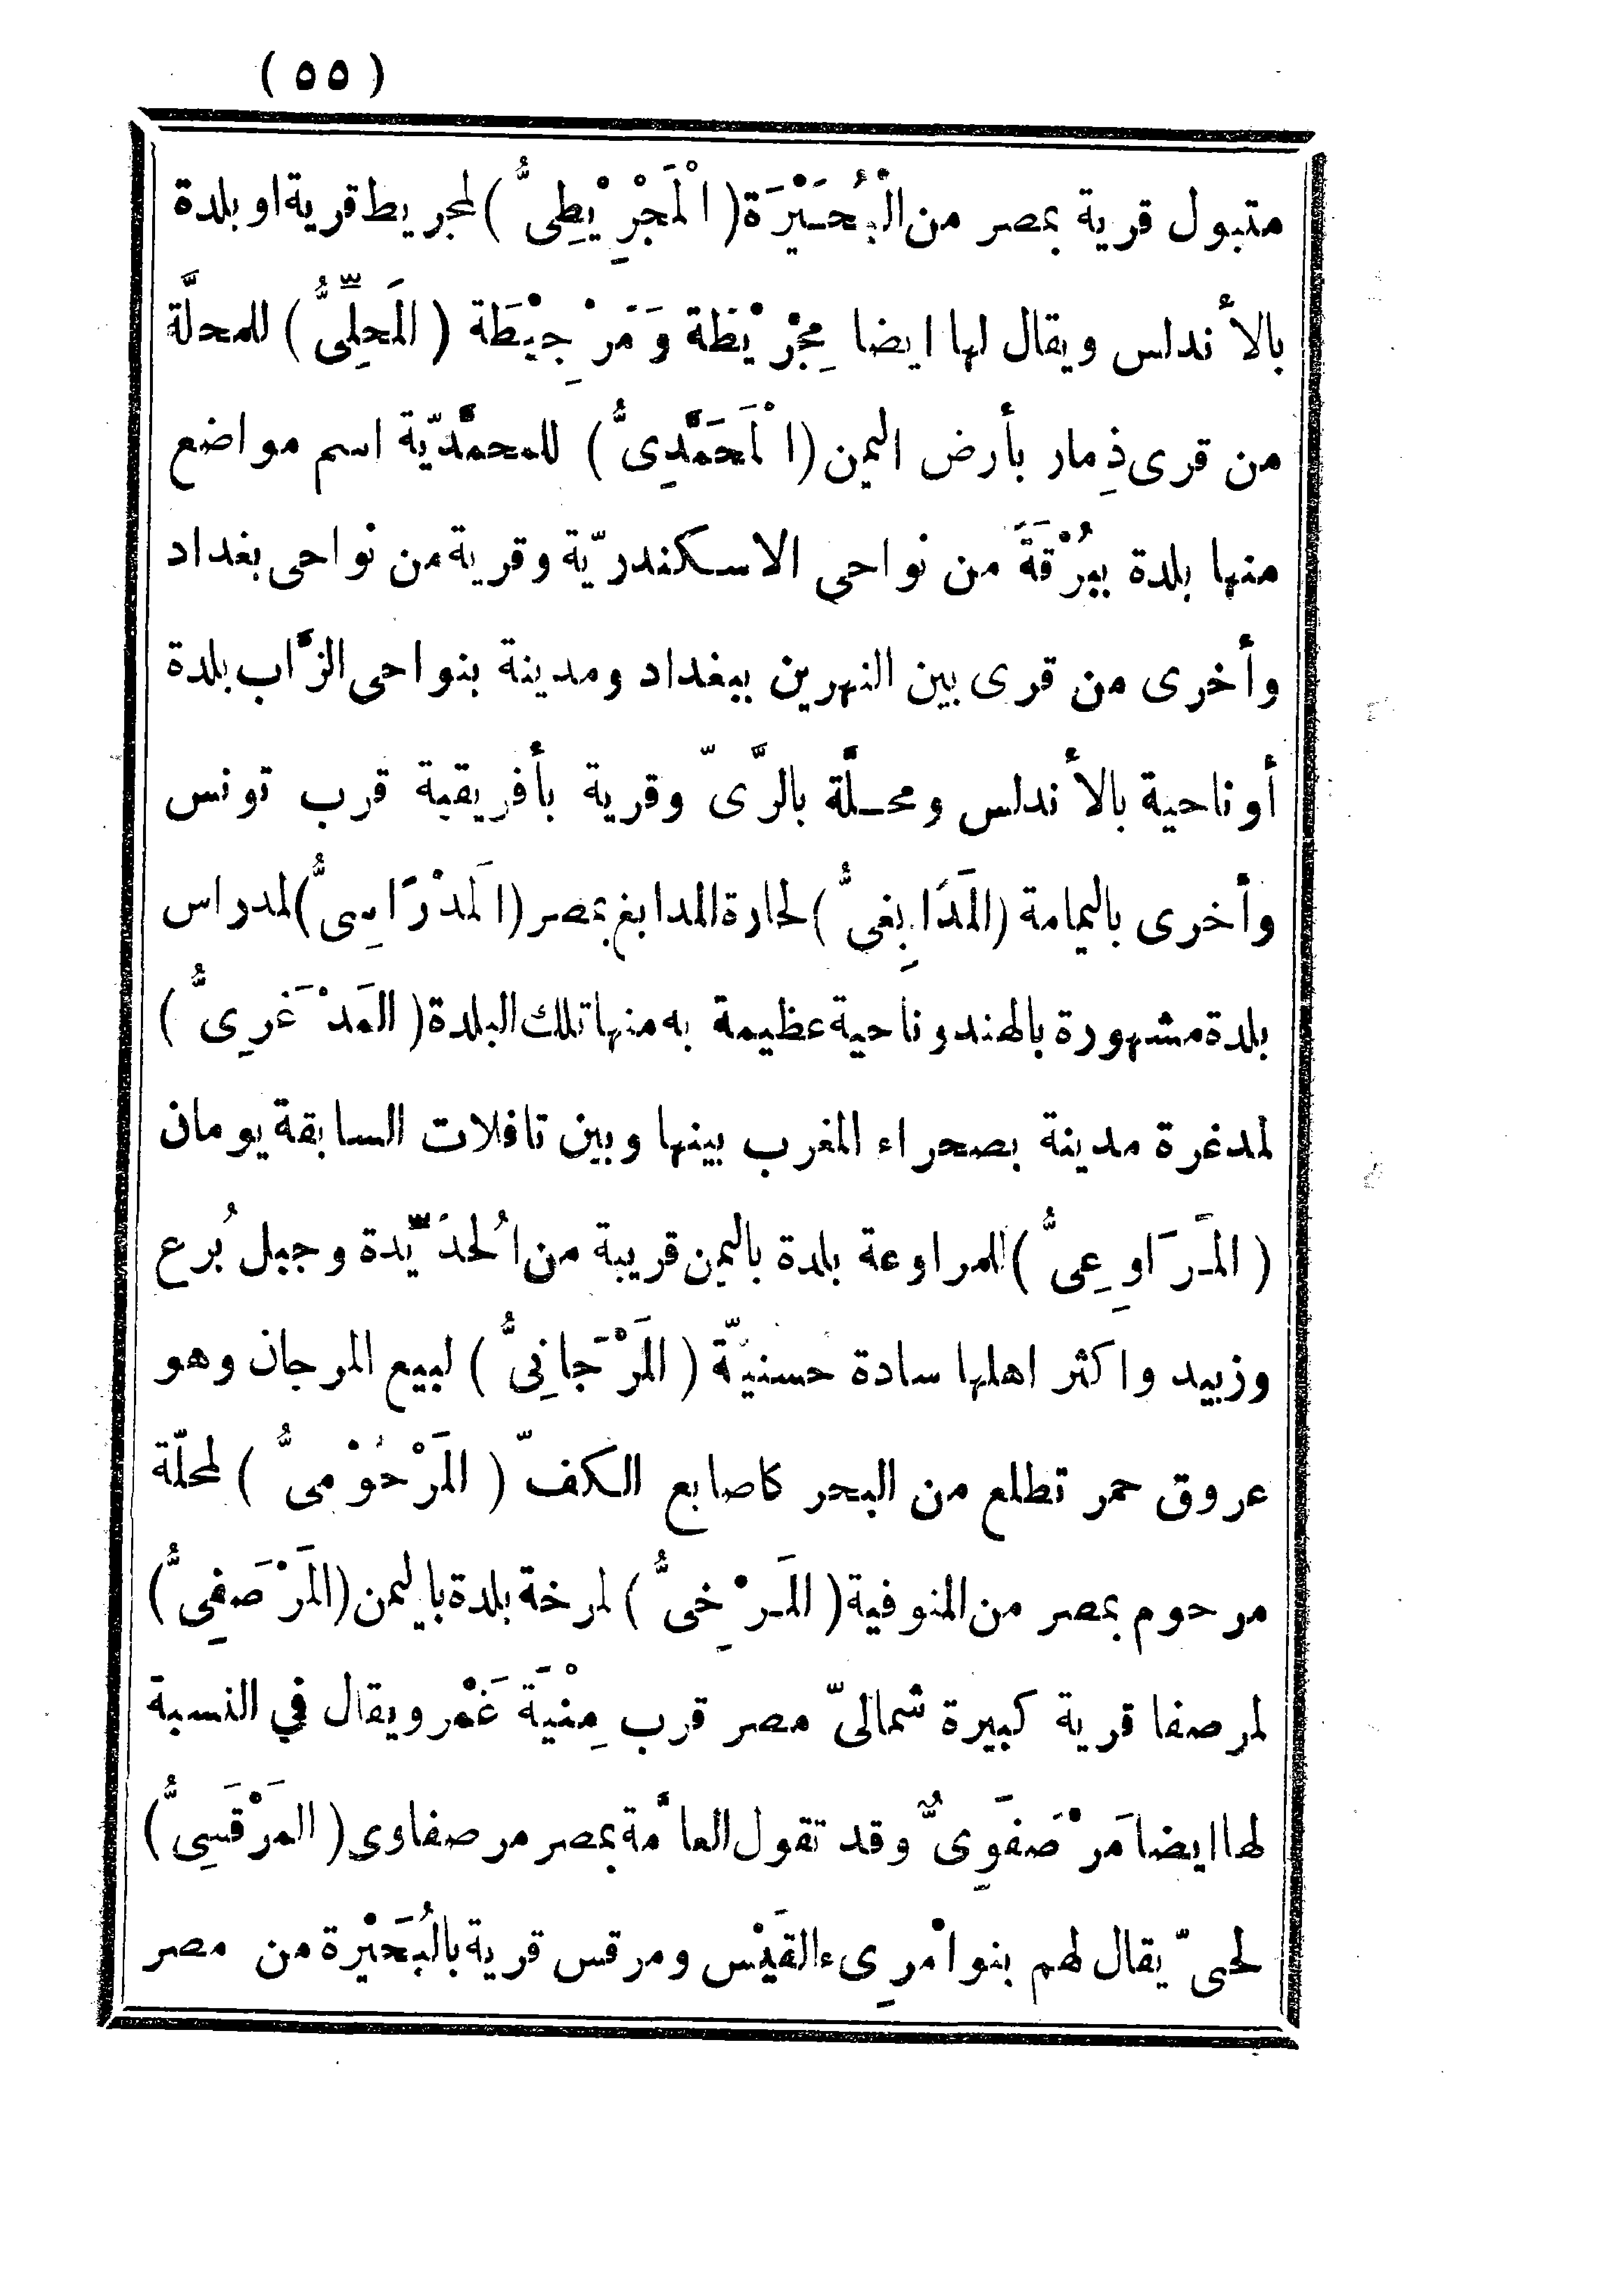 ( ٥٥ )
متبول قرية بمصر من الْبُحَيْرَة ( الْمَجْرِيْطِىُّ ) لمجريط قرية او بلدة
بالأندلس ويقال لها ايضا مِجْرْيْطَة وَمَرْجِيْطَة ( المَحِلِّىُّ ) للمحلَّة
من قرى ذِمار بأرض اليمن ( الْمُحَمَّدِىُّ ) للمحمَّديّة اسم مواضع
منها بلدة بِبُرْقَةَ من نواحى الاسكندريّة وقرية من نواحى بغداد
وأخرى من قرى بين النهرين ببغداد ومدينة بنواحى الزَّاب بلدة
أو ناحية بالأندلس ومحلَّة بالرَّىّ وقرية بأفريقية قرب تونس
وأخرى باليمامة ( المَدَابِغىُّ ) لحارة المدابغ بمصر ( المَدْرَاسِىُّ ) لمدراس
بلدة مشهورة بالهند وناحية عظيمة به منها تلك البلدة ( المَدْغَرِىُّ )
لمدغرة مدينة بصحراء المغرب بينها وبين تافلات السابقة يومان
( المَرَاوِعِىُّ ) للمراوعة بلدة باليمن قريبة من الُحدَيِّدة وجبل بُرع
وزبيد واكثر اهلها سادة حَسنيّة ( المَرْجَانِىُّ ) لبيع المرجان وهو
عروق حمر تطلع من البحر كاصابع الكفّ ( المَرْحُوْمىُّ ) لمحلّة
مرحوم بمصر من المنوفية ( المَرْخِىُّ ) لمرخة بلدة باليمن ( المَرْصَفِىُّ )
لمرصفا قرية كبيرة شمالىّ مصر قرب مِنْيَة غَمْر ويقال في النسبة
لها ايضا مَرْصَفَوِىٌّ وقد تقول العامَّة بمصر مرصفاوى ( المَرْقَسِىُّ )
لحىّ يقال لهم بنوا مْرِىء القَيْس ومرقس قرية بالبُحَيْرة من مصر